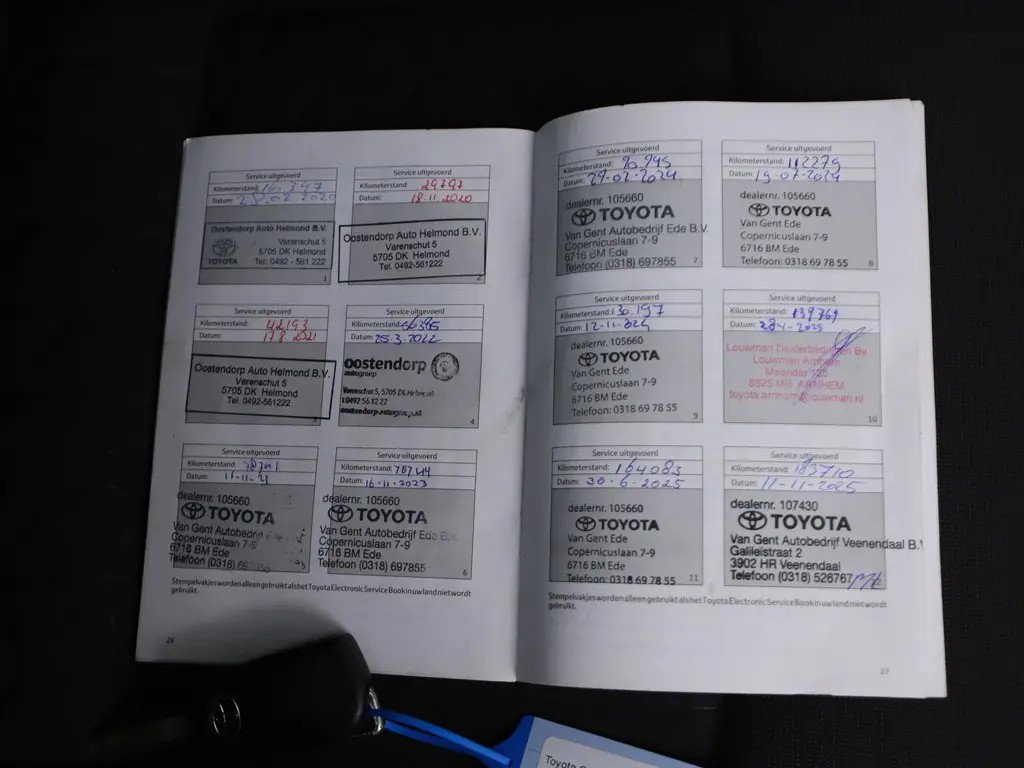 Service uitgevoerd
Kilometerstand: 16.347
Datum: 28.02 2020
Oostendorp Auto Helmond B.V.
Varenschut 5
5705 DK Helmond
Tel: 0492 - 561 222
TOYOTA
1
Service uitgevoerd
Kilometerstand: 29797
Datum: 18.11.2020
Oostendorp Auto Helmond B.V.
Varenschut 5
5705 DK Helmond
Tel. 0492-561222
Service uitgevoerd
Kilometerstand: 42193
Datum: 17.8 2021
Oostendorp Auto Helmond B.V.
Varenschut 5
5705 DK Helmond
Tel. 0492-561222
3
Service uitgevoerd
Kilometerstand: 56385
Datum: 25.3.2022
oostendorp
autogroep
Varenschut 5, 5705 DK Helmond
0492 56 12 22
oostendorp-autogroep.nl
4
Service uitgevoerd
Kilometerstand:
Datum: 11-11-
dealernr. 105660
TOYOTA
Van Gent Autobedrijf Ede
Copernicuslaan 7-9
6716 BM Ede
Telefoon (0318)
Service uitgevoerd
Kilometerstand: 78744
Datum: 16-11-2023
dealernr. 105660
TOYOTA
Van Gent Autobedrijf Ede B.V.
Copernicuslaan 7-9
6716 BM Ede
Telefoon (0318) 697855
6
Stempelvakjes worden alleen gebruikt als het Toyota Electronic Service Book in uw land niet wordt
gebruikt.
26
Service uitgevoerd
Kilometerstand: 90.945
Datum: 29-02-2024
dealernr. 105660
TOYOTA
Van Gent Autobedrijf Ede B.V.
Copernicuslaan 7-9
6716 BM Ede
Telefoon (0318) 697855
7
Service uitgevoerd
Kilometerstand: 112279
Datum: 19-07-2024
dealernr. 105660
TOYOTA
Van Gent Ede
Copernicuslaan 7-9
6716 BM Ede
Telefoon: 0318 69 78 55
8
Service uitgevoerd
Kilometerstand: 130.197
Datum: 12-11-2024
dealernr. 105660
TOYOTA
Van Gent Ede
Copernicuslaan 7-9
6716 BM Ede
Telefoon: 0318 69 78 55
9
Service uitgevoerd
Kilometerstand: 139769
Datum:
Louwman Dealerbedrijven Bv
Louwman Arnhem
Meander
6825 MB ARNHEM
toyota.arnhem@louwman.nl
10
Service uitgevoerd
Kilometerstand: 164083
Datum: 30-6-2025
dealernr. 105660
TOYOTA
Van Gent Ede
Copernicuslaan 7-9
6716 BM Ede
Telefoon: 0318 69 78 55
11
Service uitgevoerd
Kilometerstand: 183710
Datum: 12-11-2025
dealernr. 107430
TOYOTA
Van Gent Autobedrijf Veenendaal B.V
Galileistraat 2
3902 HR Veenendaal
Telefoon (0318) 526767
Stempelvakjes worden alleen gebruikt als het Toyota Electronic Service Book in uw land niet wordt
gebruikt.
27
Toyota